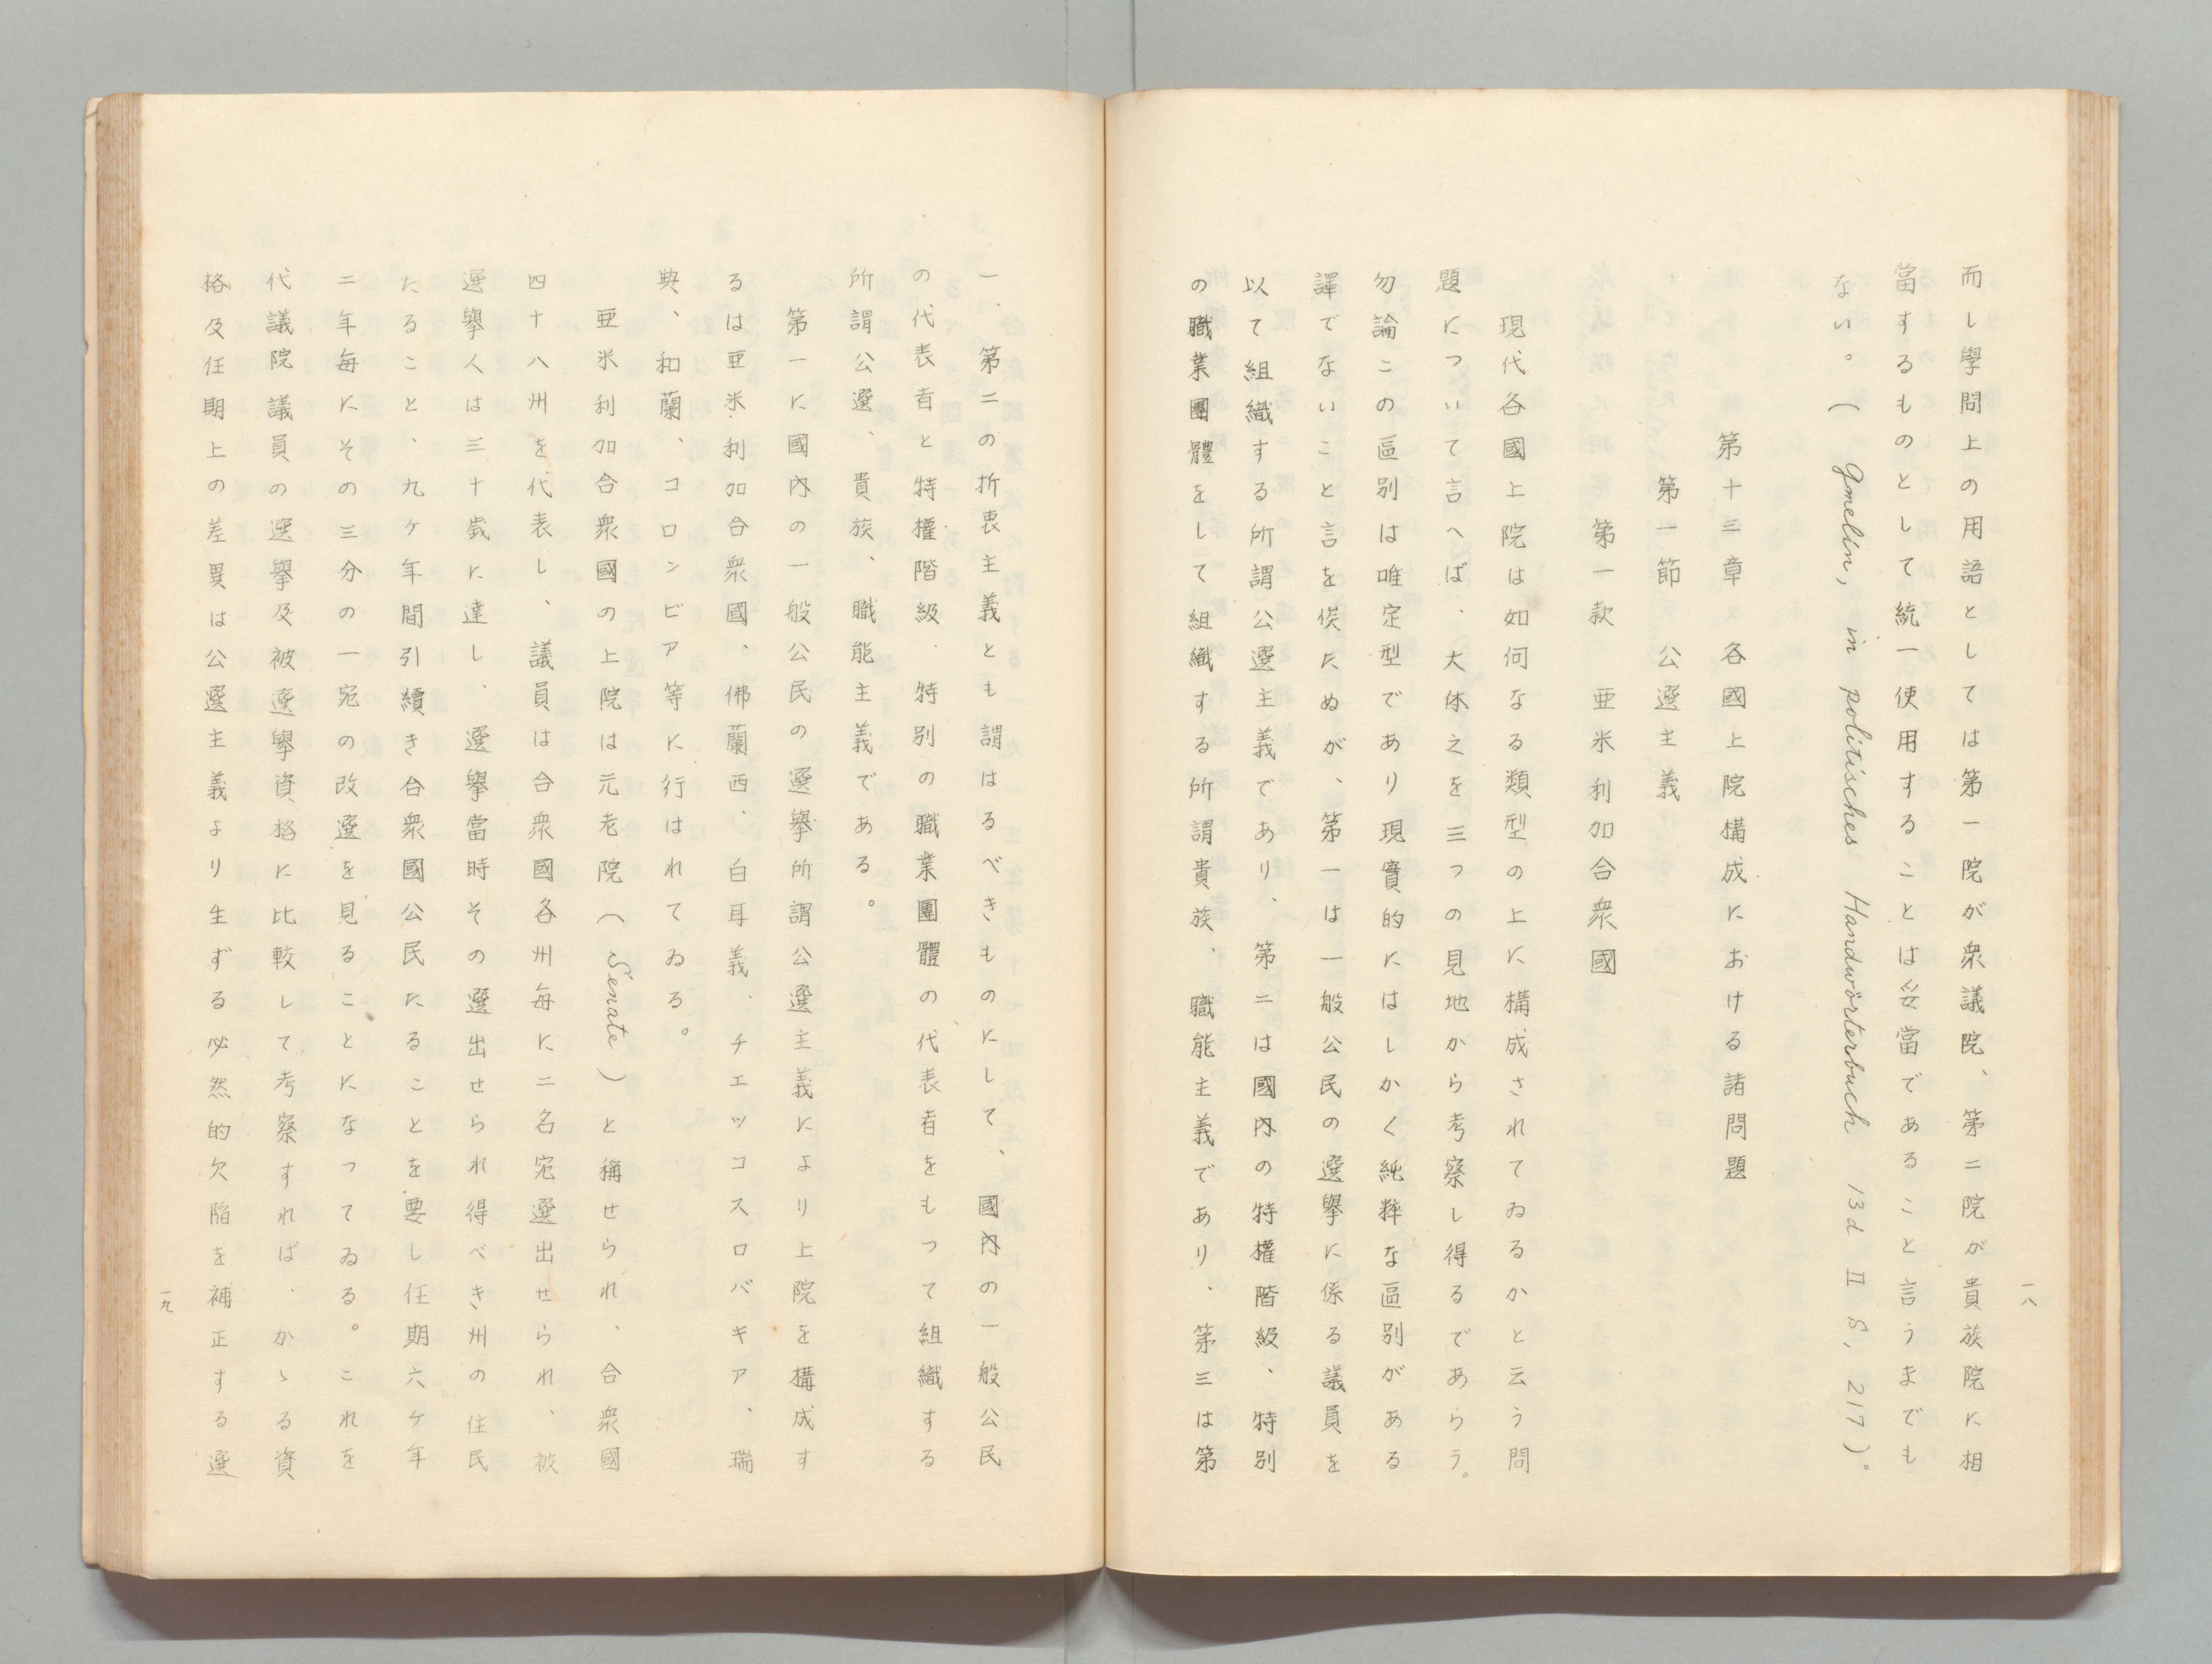 一八
而し學問上の用語としては第一院が衆議院、第二院が貴族院に相
當するものとして統一使用することは妥當であること言うまでも
ない。( Gmelin, in politisches Handwörterbuch 13d II S, 217)。
第十三章 各國上院構成における諸問題
第一節 公選主義
第一款 亜米利加合衆國
現代各國上院は如何なる類型の上に構成されてゐるかと云う問
題について言へば、大体之を三つの見地から考察し得るであらう。
勿論この區別は唯定型であり現實的にはしかく純粹な區別がある
譯でないこと言を俟たぬが、第一は一般公民の選擧に係る議員を
以て組織する所謂公選主義であり、第二は國内の特權階級、特別
の職業團體をして組織する所謂貴族、職能主義であり、第三は第
一、第二の折衷主義とも謂はるべきものにして、國内の一般公民
の代表者と特權階級、特別の職業團體の代表者をもつて組織する
所謂公選、貴族、職能主義である。
第一に國内の一般公民の選擧所謂公選主義により上院を構成す
るは亜米利加合衆國、佛蘭西、白耳義、チエツコスロバキア、瑞
典、和蘭、コロンビア等に行はれてゐる。
亜米利加合衆國の上院は元老院(Senate)と稱せられ、合衆國
四十八州を代表し、議員は合衆國各州毎に二名宛選出せられ、被
選擧人は三十歳に達し、選擧當時その選出せられ得べき州の住民
たること、九ケ年間引續き合衆國公民たることを要し任期六ケ年
二年毎にその三分の一宛の改選を見ることになつてゐる。これを
代議院議員の選擧及被選擧資格に比較して考察すれば、かゝる資
格及任期上の差異は公選主義より生ずる必然的欠陥を補正する選
一九